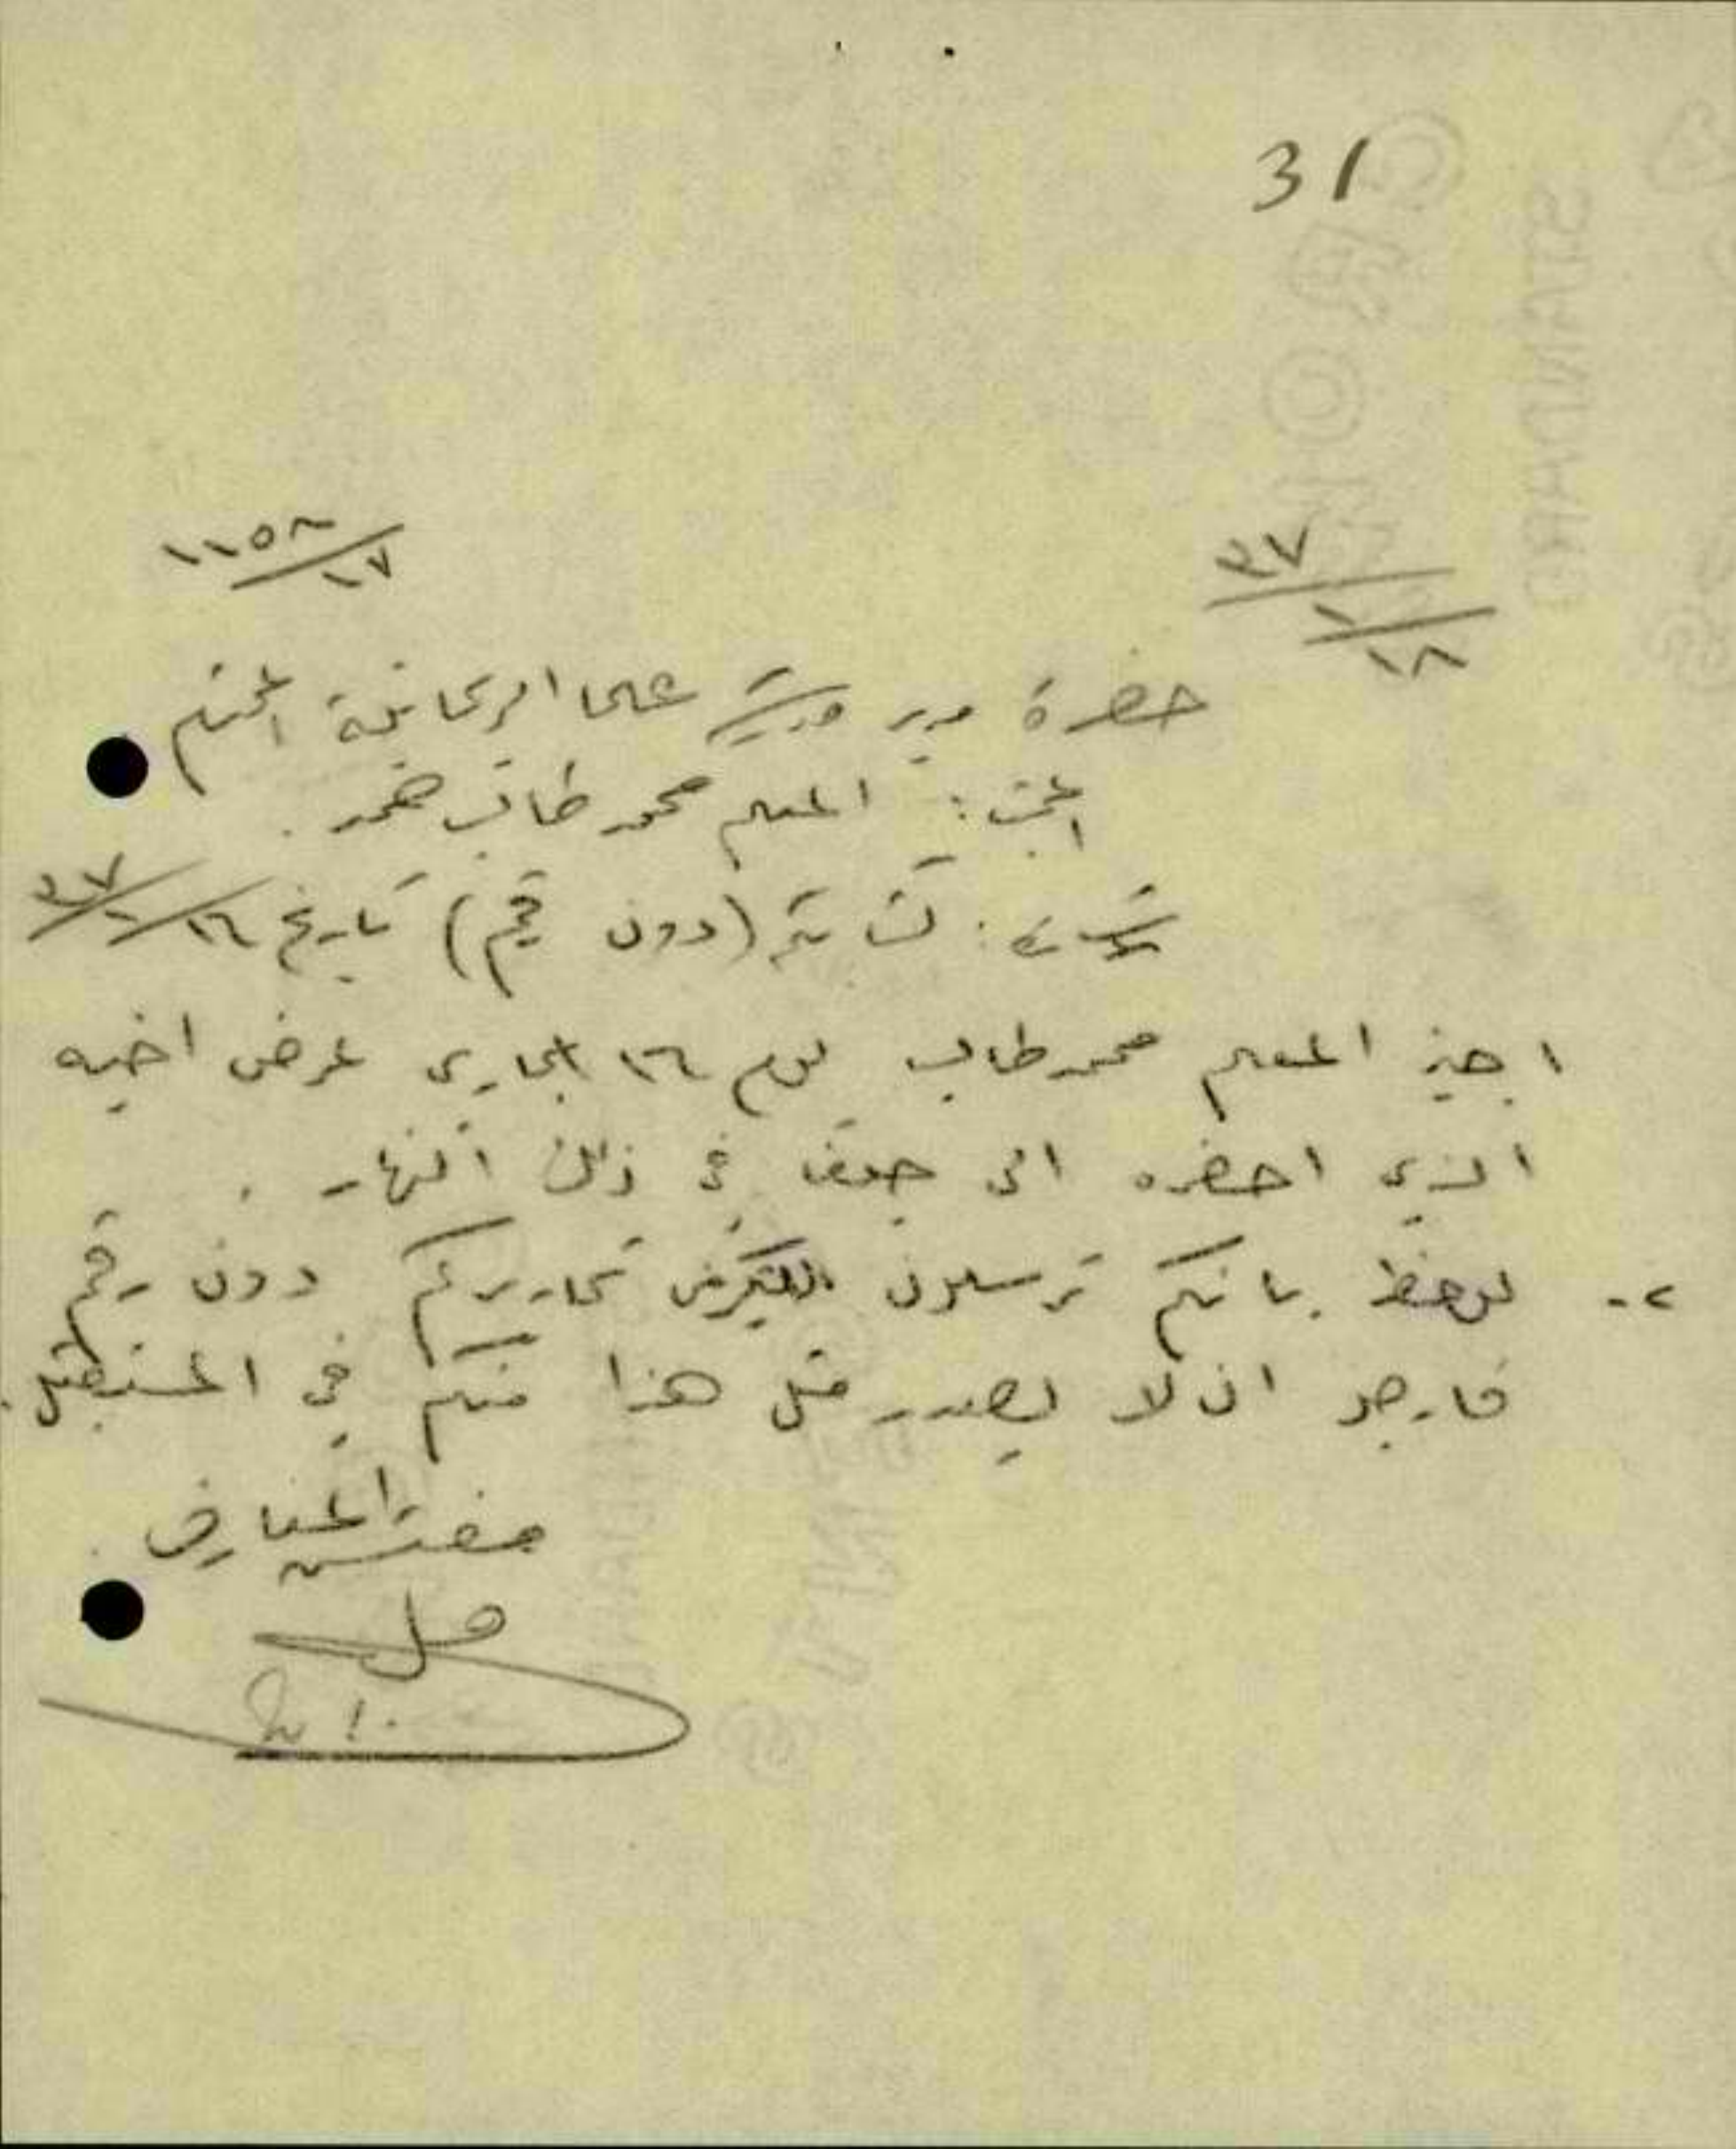 31
١١٥٨/١٧
٣٧/١/١٨
حضرة مدير مدرسة عليا الريحانية المحترم
المبحث: المعلم محمد طالب ضمد.
اشارة: كتابكم (دون رقم) تاريخ ١٦/١/٣٧
اجيز المعلم محمد طالب يوم ١٦ الجاري لمرض اخيه
الذي احضره الى في ذلك النهار.
٢- لوحظ بانكم ترسلون تحاريركم دون رقم
فارجو ان لا يصدر مثل هذا منكم في المستقبل.
مفتش المعارف